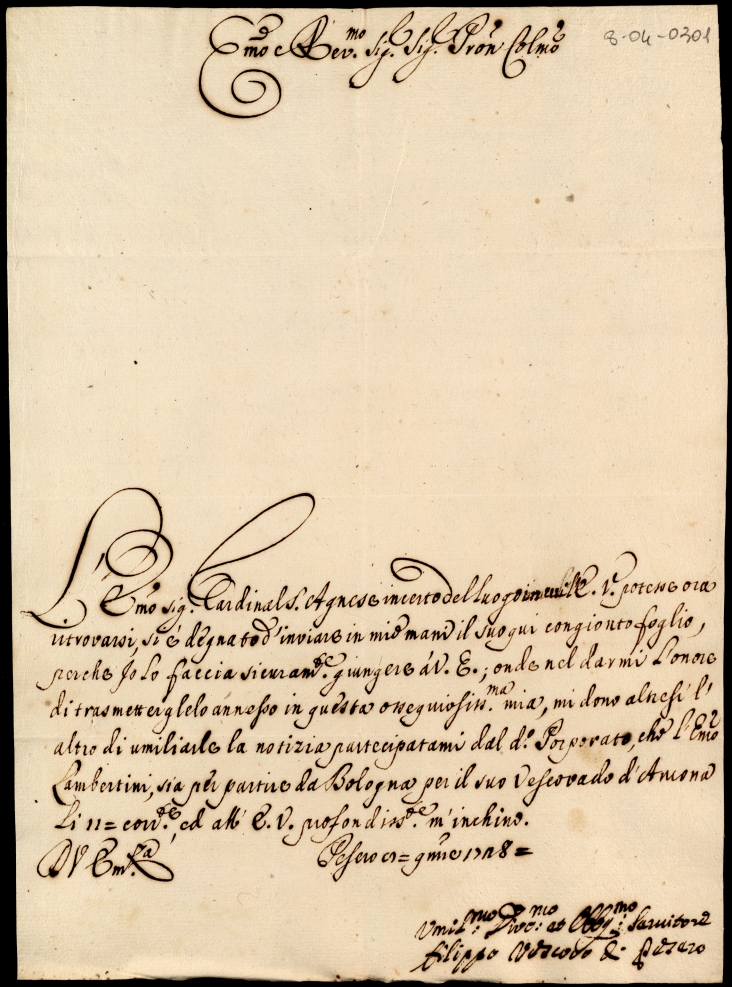 8-04-0301
Emo e Rev.mo Sig. Sig. Pron Colmo
L'Emo Sig. Cardinal S. Agnese incerto del luogo in cui E. V. potesse ora
ritrovarsi, si è degnato d'inviare in mie mani il suo qui congionto foglio,
perche Io Lo faccia sicuram.te giungere á V. E.; onde nel darmi L'onore
di trasmetterglelo annesso in questa ossequiosiss.ma mia, mi dono altresi l'
altro di umiliarle la notizia partecipatami dal d.o Porporato, che l'Emo
Lambertini, sia per partire da Bologna per il suo Vescovado d'Ancona
Li = corr.te, ed all' E. V. profondiss.te m'inchino.
D V Em.za
Pesero = 9mre 1728 =
Umil.mo Div.mo et Obbg.mo Servitore
Filippo Vescovo di Pesero